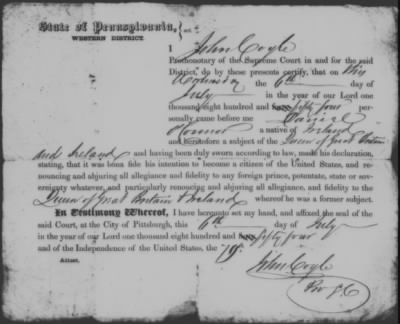 State of Pennsylvania, } ss.
WESTERN DISTRICT.
I John Coyle
Prothonotary of the Supreme Court in and for the said
District, do by these presents certify, that on this
the 6th day of
July in the year of our Lord one
thousand eight hundred and fifty four per-
sonally came before me Daniel
O'Connor a native of Ireland
and heretofore a subject of the Queen of Great Britain
and Ireland and having been duly sworn according to law, made his declaration,
stating, that it was bona fide his intention to become a citizen of the United States, and re-
nouncing and abjuring all allegiance and fidelity to any foreign prince, potentate, state or so-
vereignty whatever, and particularly renouncing and abjuring all allegiance, and fidelity to the
Queen of Great Britain & Ireland whereof he was a former subject.
In Testimony Whereof, I have hereunto set my hand, and affixed the seal of the
said Court, at the City of Pittsburgh, this 6th day of July
in the year of our Lord one thousand eight hundred and fifty four
and of the Independence of the United States, the 79th
John Coyle
Attest.
Pro S.C